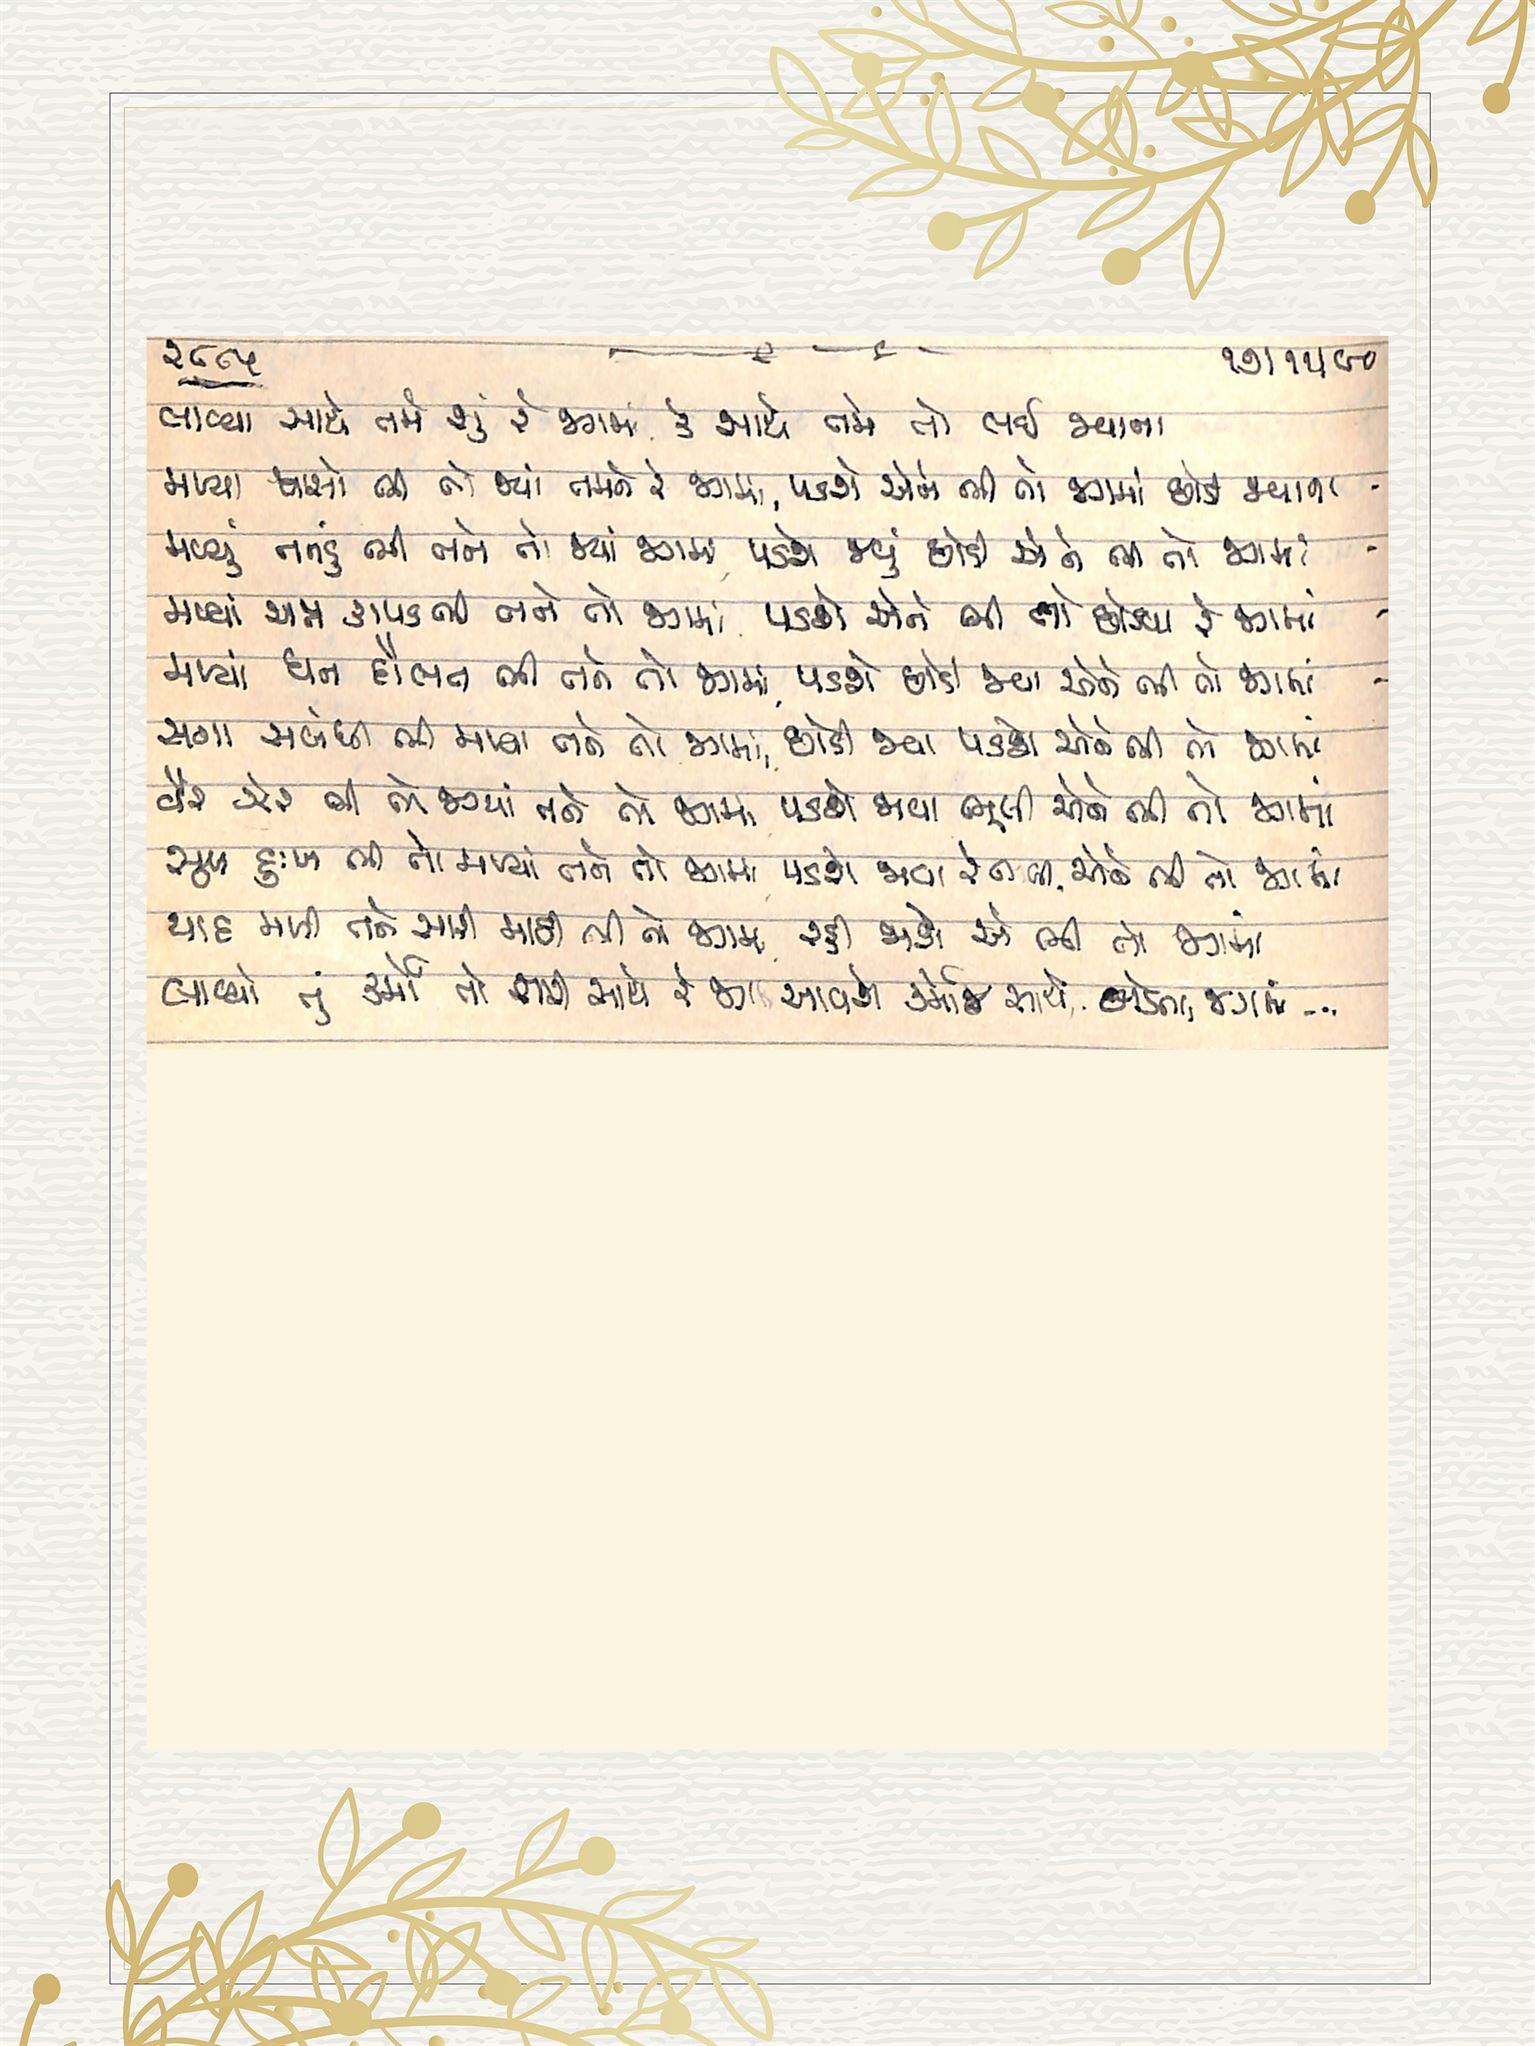 ૨૮૯૫
૧૭/૧૫/૯૦
લાવ્યા સાથે તમે શું રે જગમાં, કે સાથે તમે તો લઈ જવાના
મળ્યા શ્વાસો ભી તો જ્યાં તમને રે જગમાં, પડશે એને ભી તો જગમાં છોડી જવાના -
મળ્યું તનડું ભી તને તો જ્યાં જગમાં, પડશે જવું છોડી એને ભી તો જગમાં -
મળ્યાં અન્ન કાપડ ભી તને તો જગમાં, પડશે એને ભી તો છોડવા રે જગમાં -
મળ્યાં ધન દૌલત ભી તને તો જગમાં, પડશે છોડી જવા એને ભી તો જગમાં -
સગા સબંધી ભી મળ્યા તને તો જગમાં, છોડી જવા પડશે એને ભી તો જગમાં
વૈર ઝેર ભી તો જાગ્યાં તને તો જગમાં, પડશે જવા ભૂલી એને ભી તો જગમાં
સુખ દુઃખ ભી તો મળ્યાં તને તો જગમાં, પડશે જવા એને ભી તો જગમાં
યાદ મળી તને સારી માઠી ભી તો જગમાં, રહી જાશે એ ભી તો જગમાં
લાવ્યો તું કર્મો તો તારી સાથે રે જગમાં, આવશે કર્મોજ સાથે, છોડતા જગમાં ...